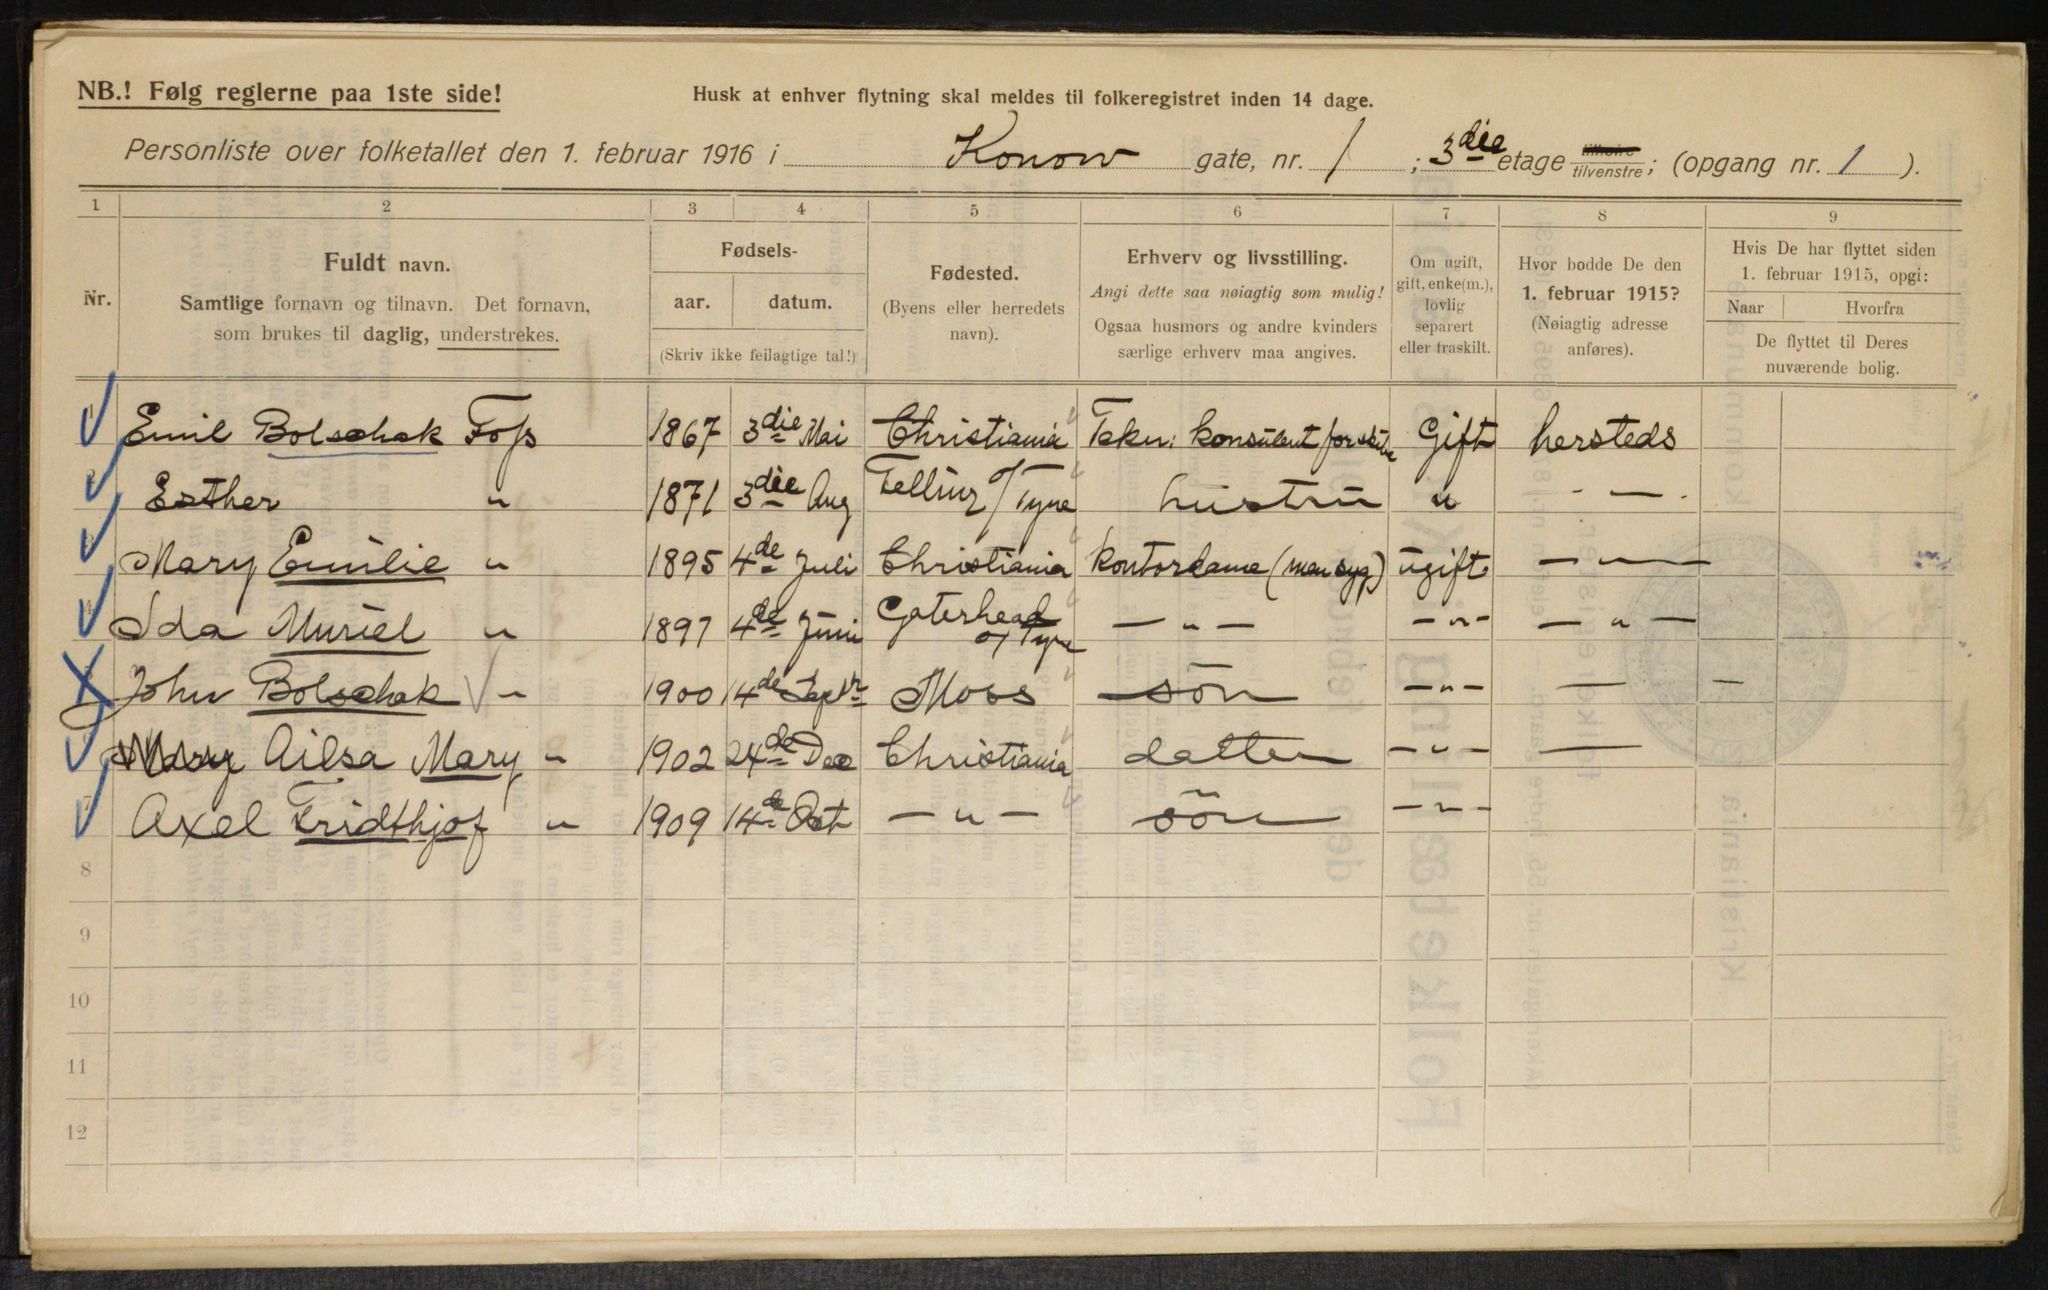 NB.! Følg reglerne paa 1ste side!
Husk at enhver flytning skal meldes til folkeregistret inden 14 dage.
Personliste over folketallet den 1. februar 1916 i Konow gate, nr. 1 ; 3die etage tilhøire tilvenstre; (opgang nr. 1 ).
1 2 3 4 5 6 7 8 9
Nr.
Fuldt navn.
Samtlige fornavn og tilnavn. Det fornavn,
som brukes til daglig, understrekes.
Fødsels-
aar. datum.
(Skriv ikke feilagtige tal!)
Fødested.
(Byens eller herredets
navn).
Erhverv og livsstilling.
Angi dette saa nøiagtig som mulig!
Ogsaa husmors og andre kvinders
særlige erhverv maa angives.
Om ugift,
gift, enke(m.),
lovlig
separert
eller fraskilt.
Hvor bodde De den
1. februar 1915?
(Nøiagtig adresse
anføres).
Hvis De har flyttet siden
1. februar 1915, opgi:
Naar Hvorfra
De flyttet til Deres
nuværende bolig.
1 Emil Bolschak Foss 1867 3die Mai Christiania Tekn: konsulent Gift hersteds
2 Esther " 1871 3die Aug Felling o/Tyne hustru " - — -
3 Mary Emilie " 1895 4de Juli Christiania kontordame ugift — " —
4 Ida Muriel " 1897 4de Juni Gateshead o/Tyne — " — - " - — " —
5 John Bolschak " 1900 14de Septr Moss sön - " - — —
6 Mary Ailsa Mary " 1902 24de Dec Christiania datter - " - —
7 Axel Fridthjof " 1909 14de Oct — " — sön - " -
8
9
10
11
12